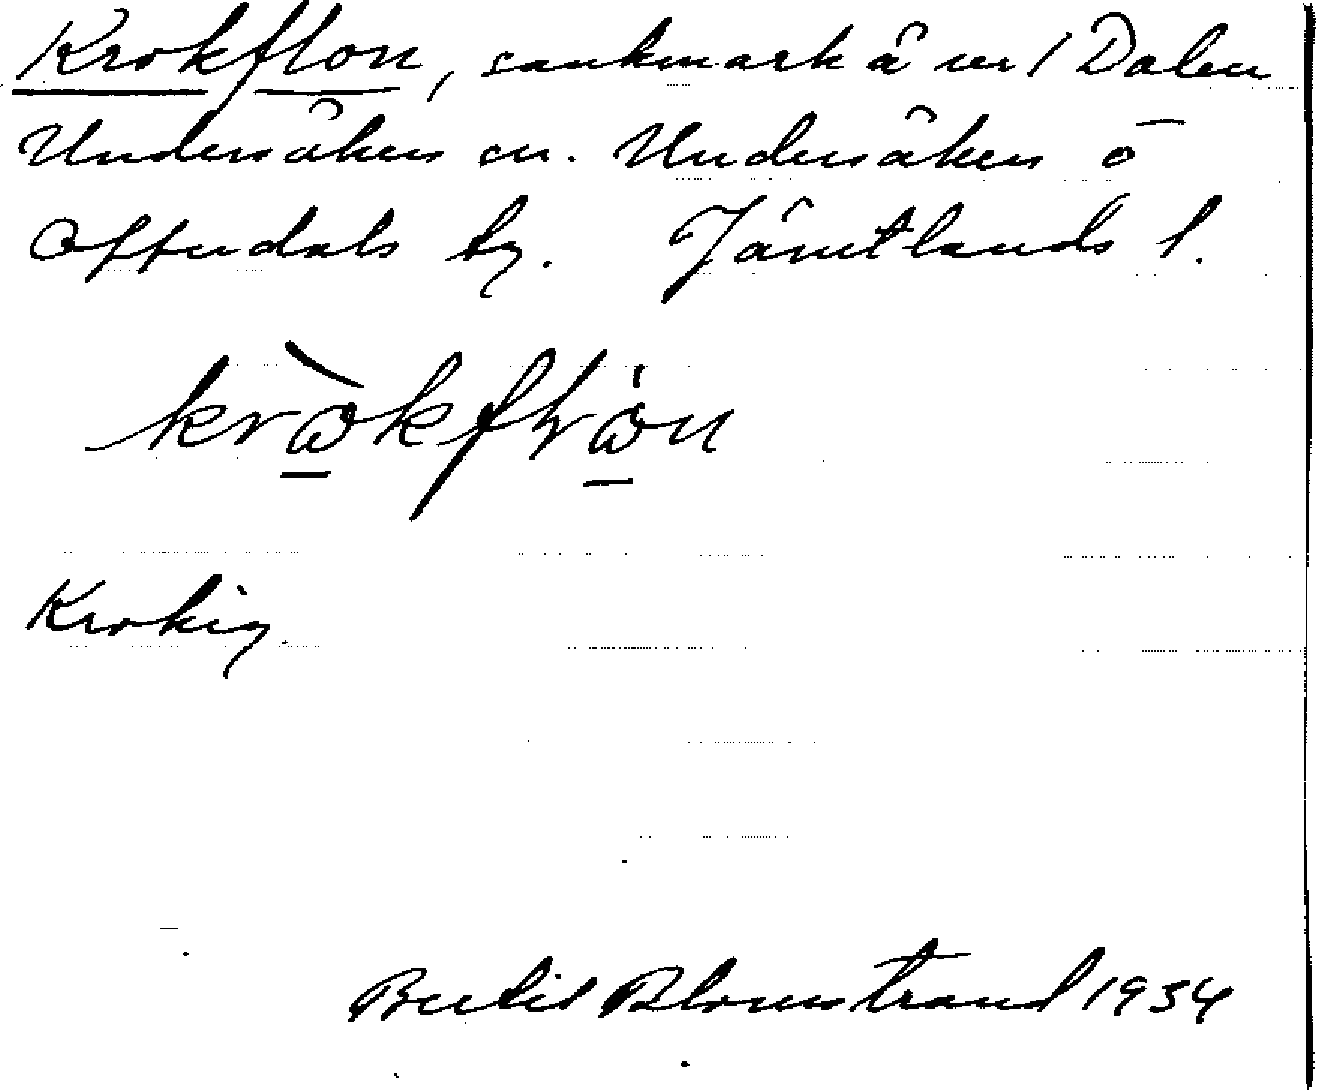 Krokflon, sankmark å ser / Dalen
Undersåkers sn. Undersåkers o
Offerdals tg. Jämtlands l.
kròkflòn
Krokig.
Bertil Blomstrand 1934